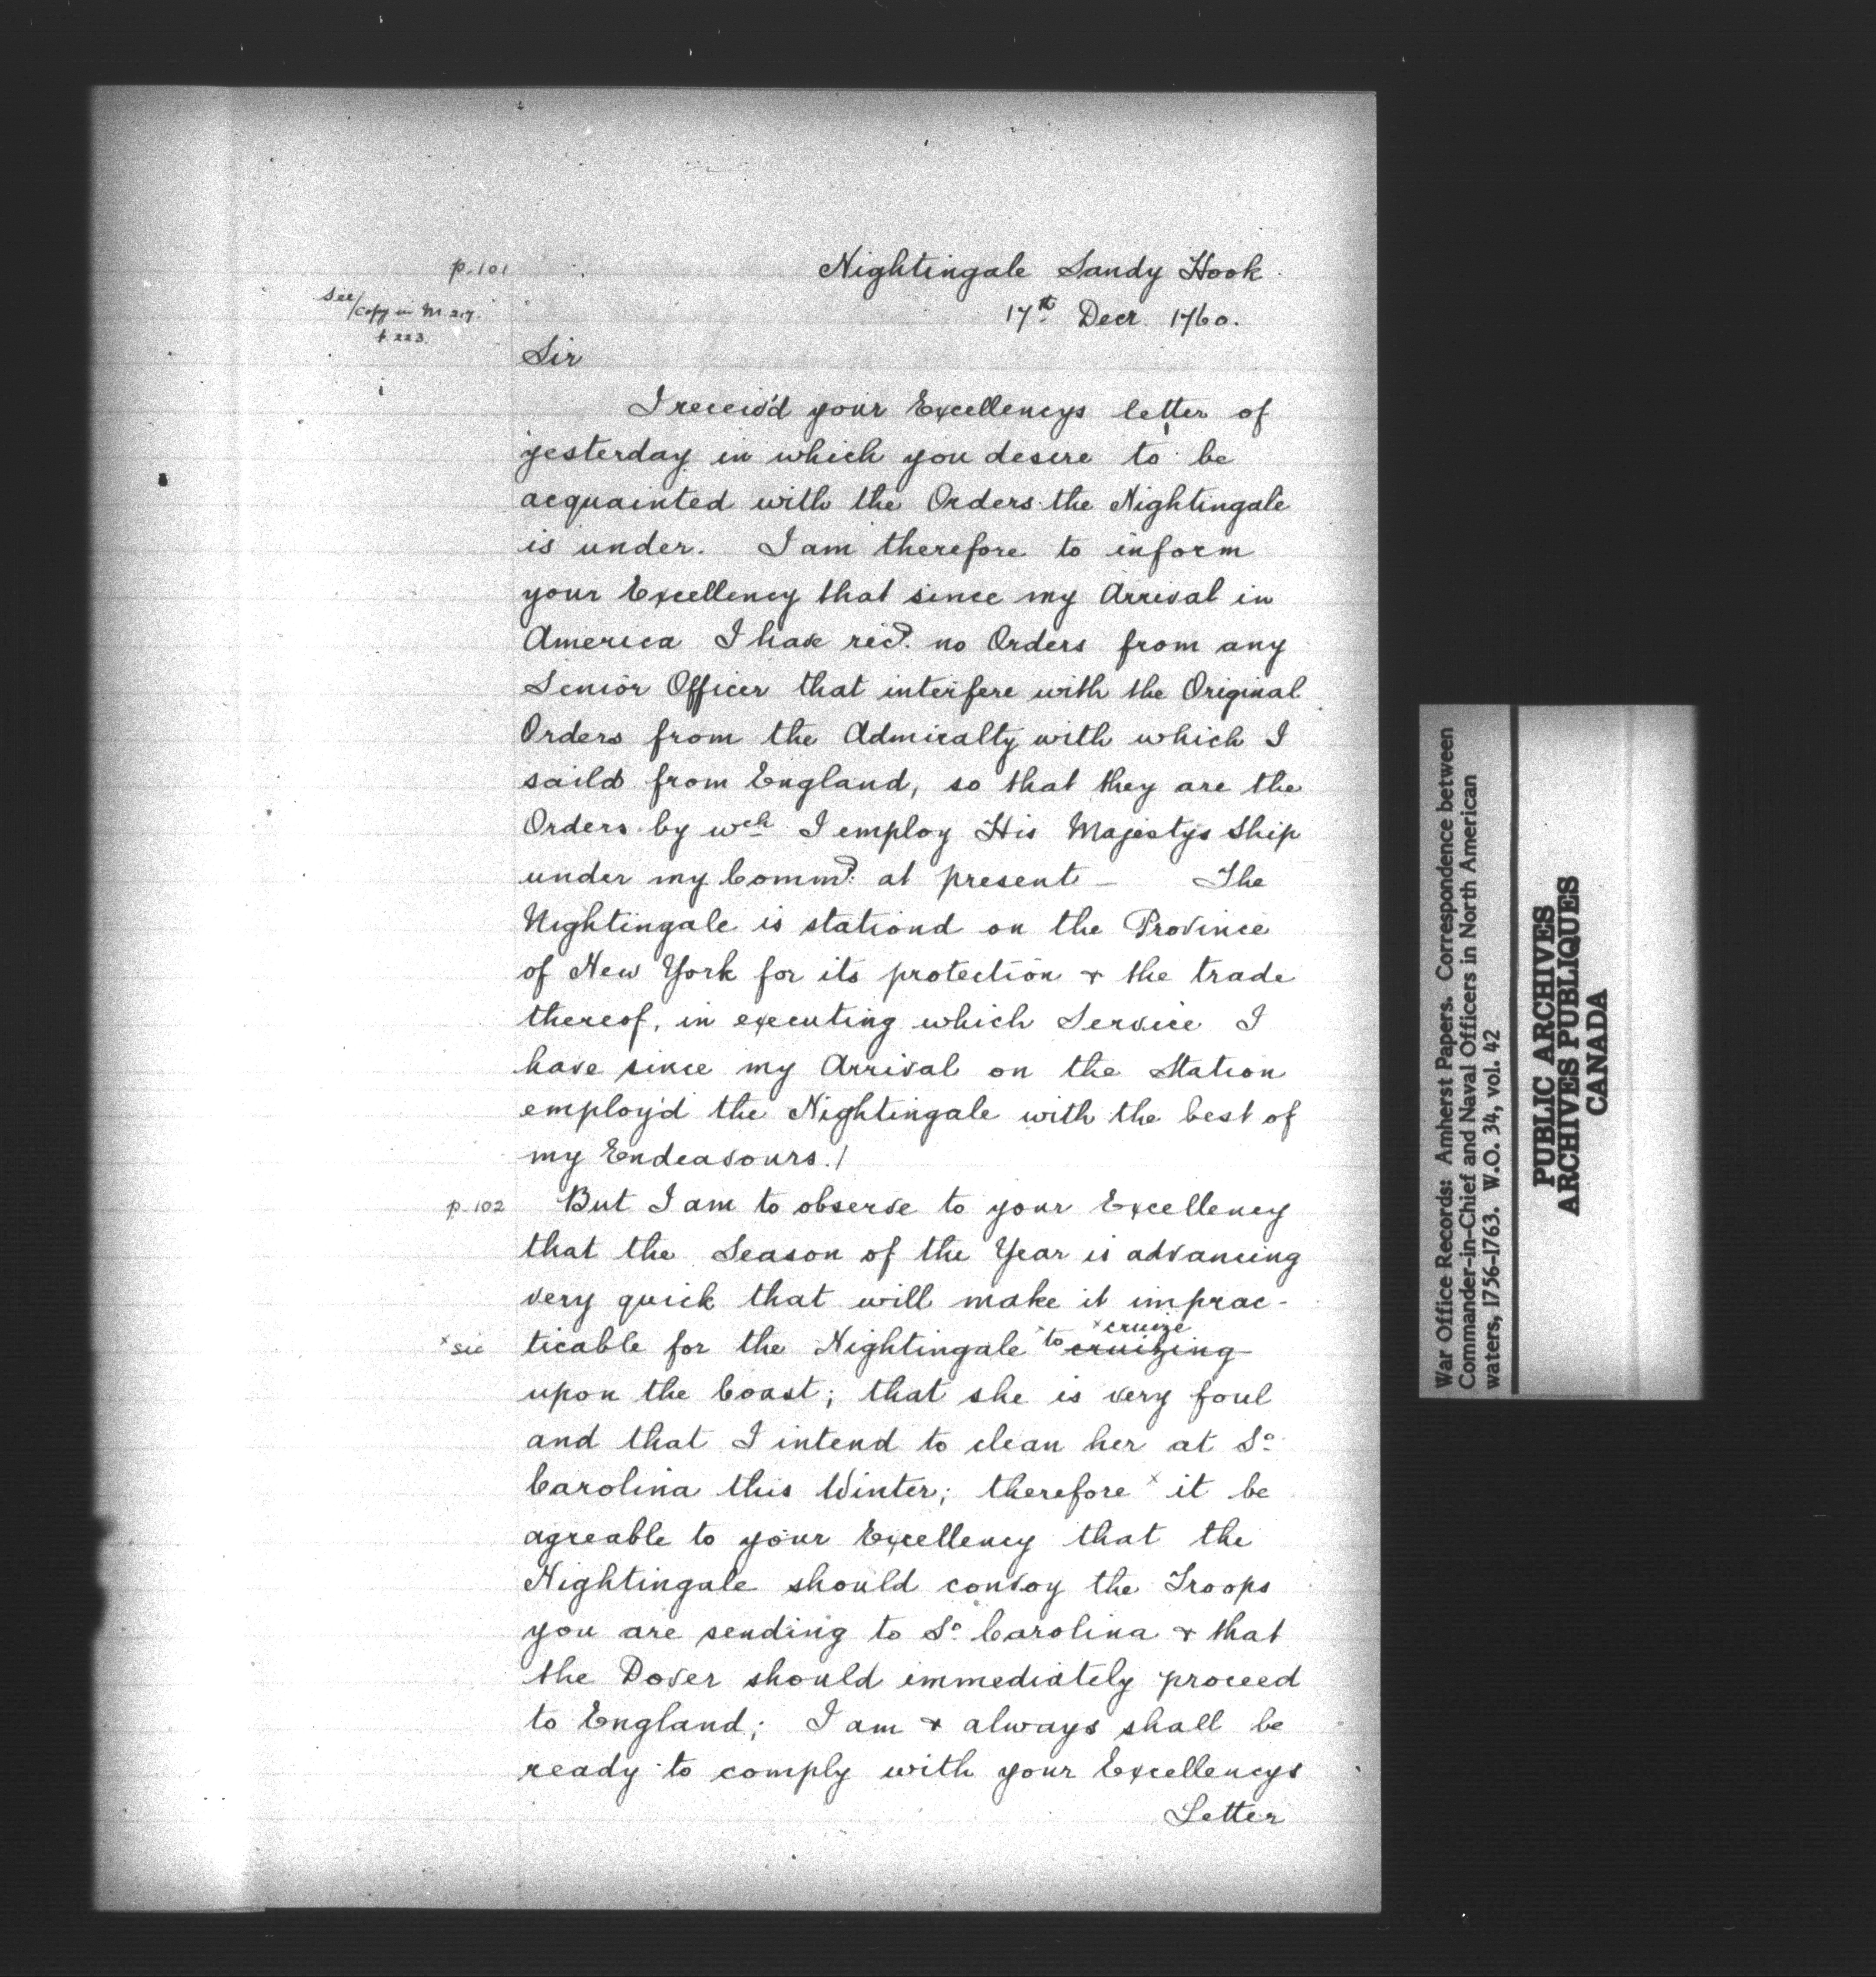 p. 101
Nightingale Sandy Hook
See/
Copy in M 217.
p 223.
17th Decr 1760.
Sir
I receiv'd your Excellencys letter of
yesterday in which you desire to be
acquainted with the Orders the Nightingale
is under. I am therefore to inform
your Excellency that since my Arrival in
America I have recd. no Orders from any
Senior Officer that interfere with the Original
Orders from the Admiralty with which I
saild from England, so that they are the
Orders by wch I employ His Majestys Ship
under my Commd. at present — The
Nightingale is stationd on the Province
of New York for its protection & the trade
thereof, in executing which Service I
have since my Arrival on the Station
employ'd the Nightingale with the best of
my Endeavours./
p. 102 But I am to observe to your Excellency
that the Season of the Year is advancing
very quick that will make it imprac-
x cruize
x sic ticable for the Nightingale x to cruizing
upon the Coast; that she is very foul
and that I intend to clean her at So.
Carolina this Winter; therefore x it be
agreable to your Excellency that the
Nightingale should convoy the Troops
you are sending to So. Carolina & that
the Dover should immediately proceed
to England; I am & always shall be
ready to comply with your Excellencys
Letter
War Office Records: Amherst Papers. Correspondence between
Commander-in-Chief and Naval Officers in North American
waters, 1756-1763. W.O. 34, vol. 42
PUBLIC ARCHIVES
ARCHIVES PUBLIQUES
CANADA